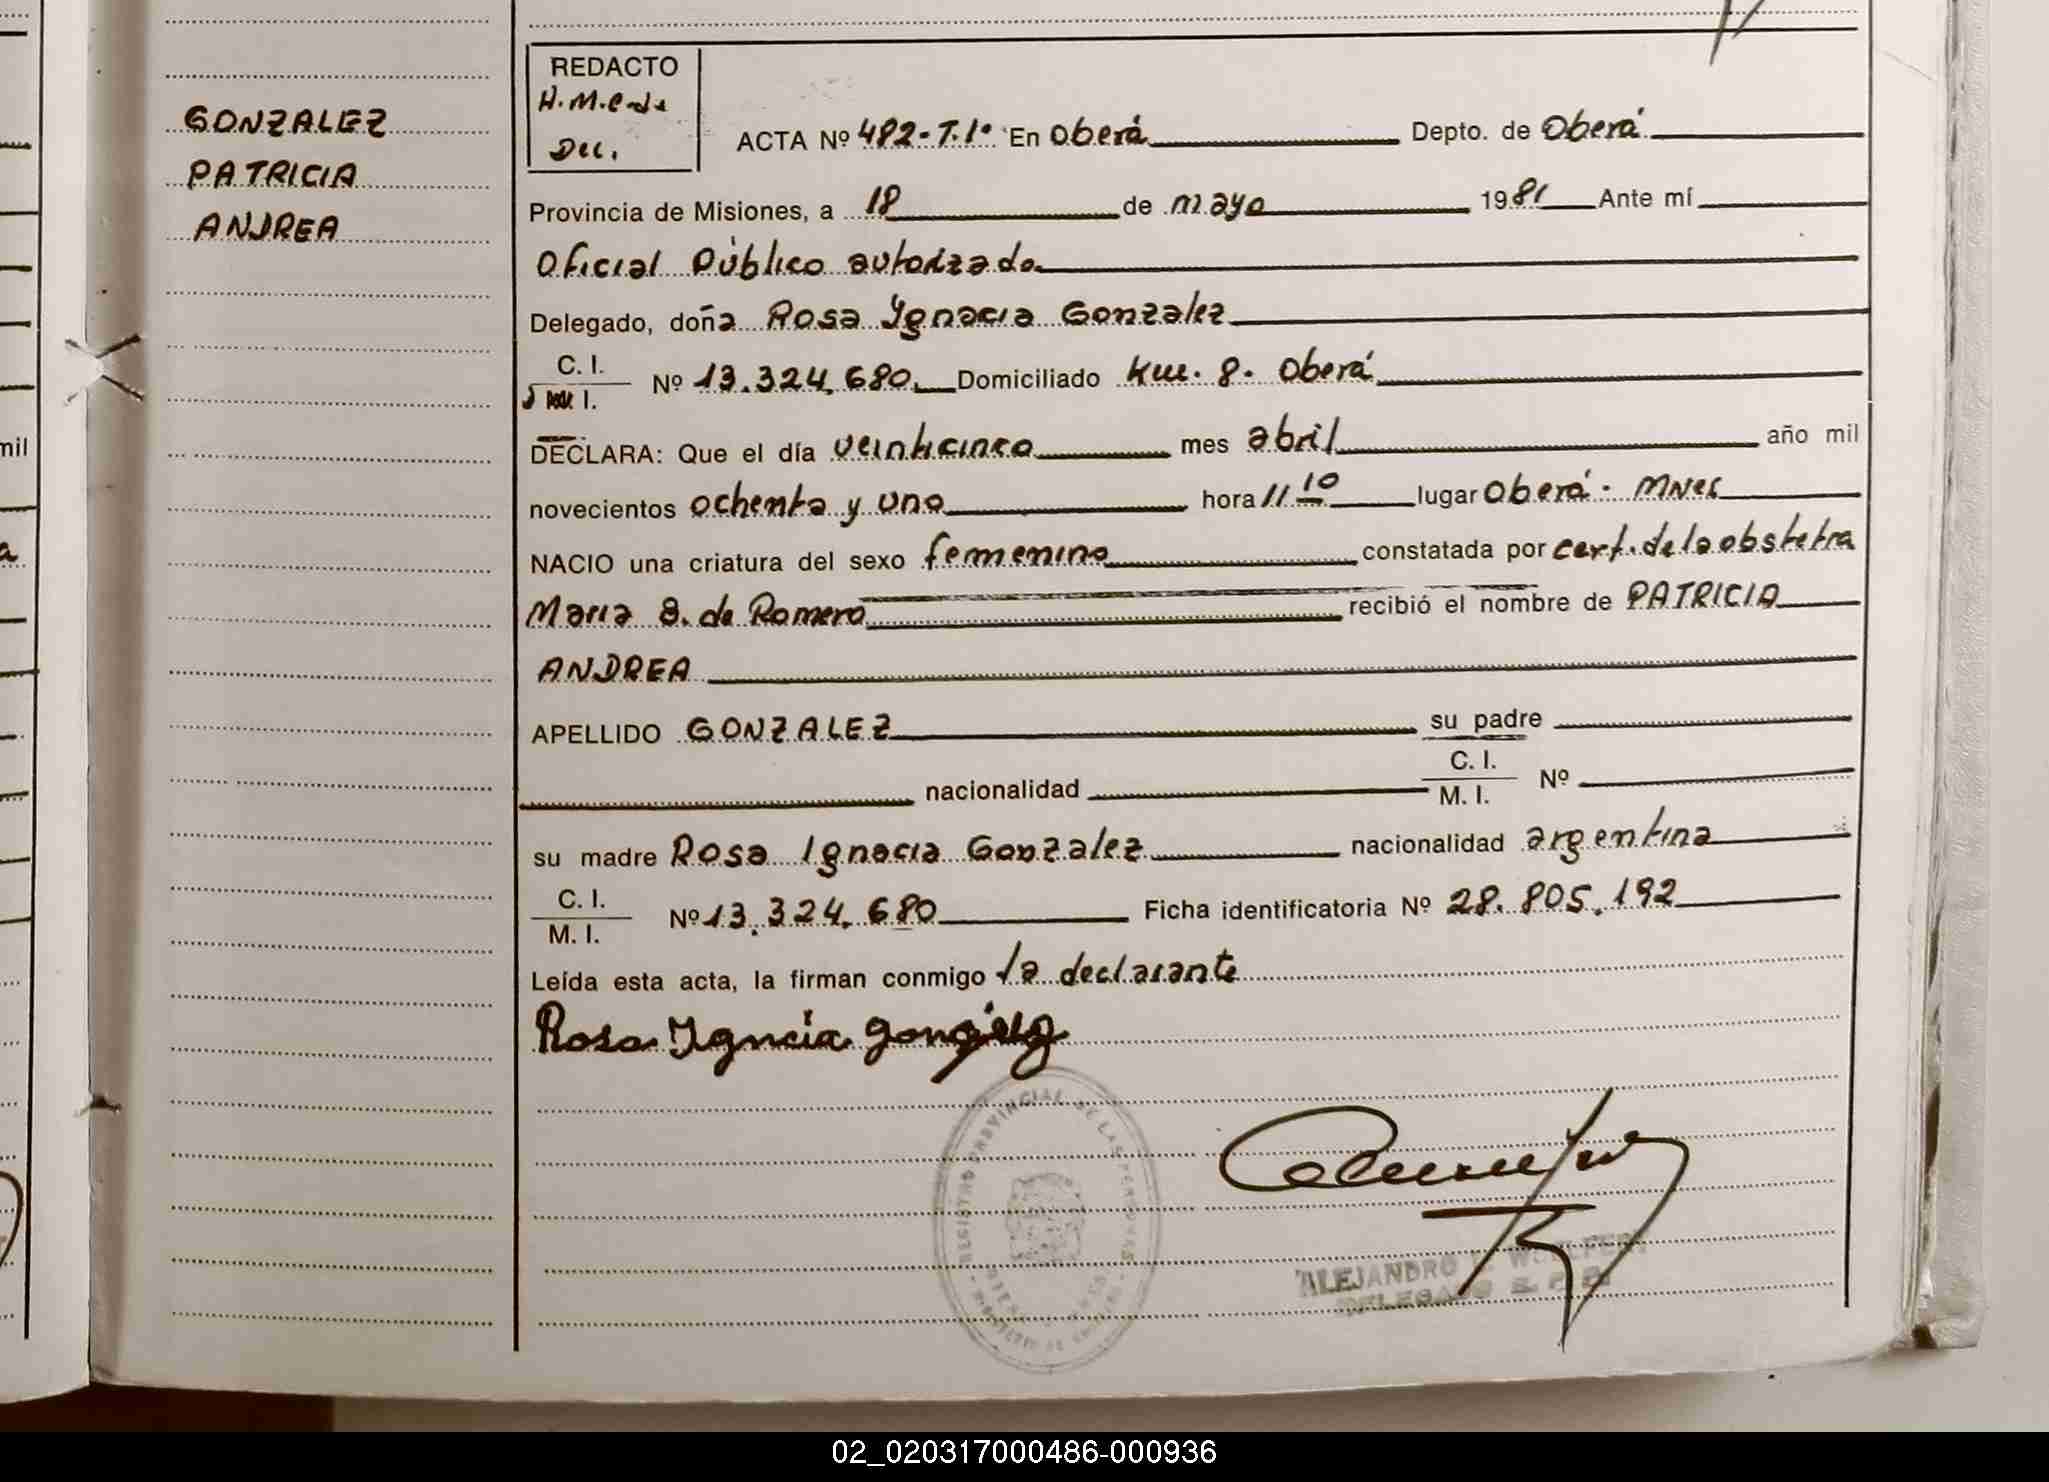 GONZALEZ
PATRICIA
ANDREA
mil
a
REDACTO
Dec.
ACTA Nº 482-T.1º En Oberá Depto. de Oberá
Provincia de Misiones, a 18 de mayo 1981 Ante mí
Oficial Público autorizado
Delegado, doña Rosa Ignacia Gonzalez
C. I.
I. Nº 13.324.680. Domiciliado Km. 8. Oberá
DECLARA: Que el día veinticinco mes abril año mil
novecientos ochenta y uno hora 11 10 lugar Oberá. Mnes
NACIO una criatura del sexo femenino constatada por cert. de la obstetra
Maria de Romero recibió el nombre de PATRICIA
ANDREA
APELLIDO GONZALEZ su padre
nacionalidad C. I. M. I. Nº
su madre Rosa Ignacia Gonzalez nacionalidad argentina
C. I. M. I. Nº 13.324.680 Ficha identificatoria Nº 28.805.192
Leída esta acta, la firman conmigo la declarante
Rosa Igncia Gonzalez
REGISTRO PROVINCIAL DE LAS PERSONAS
ALEJANDRO
DELEGADO
02_020317000486-000936